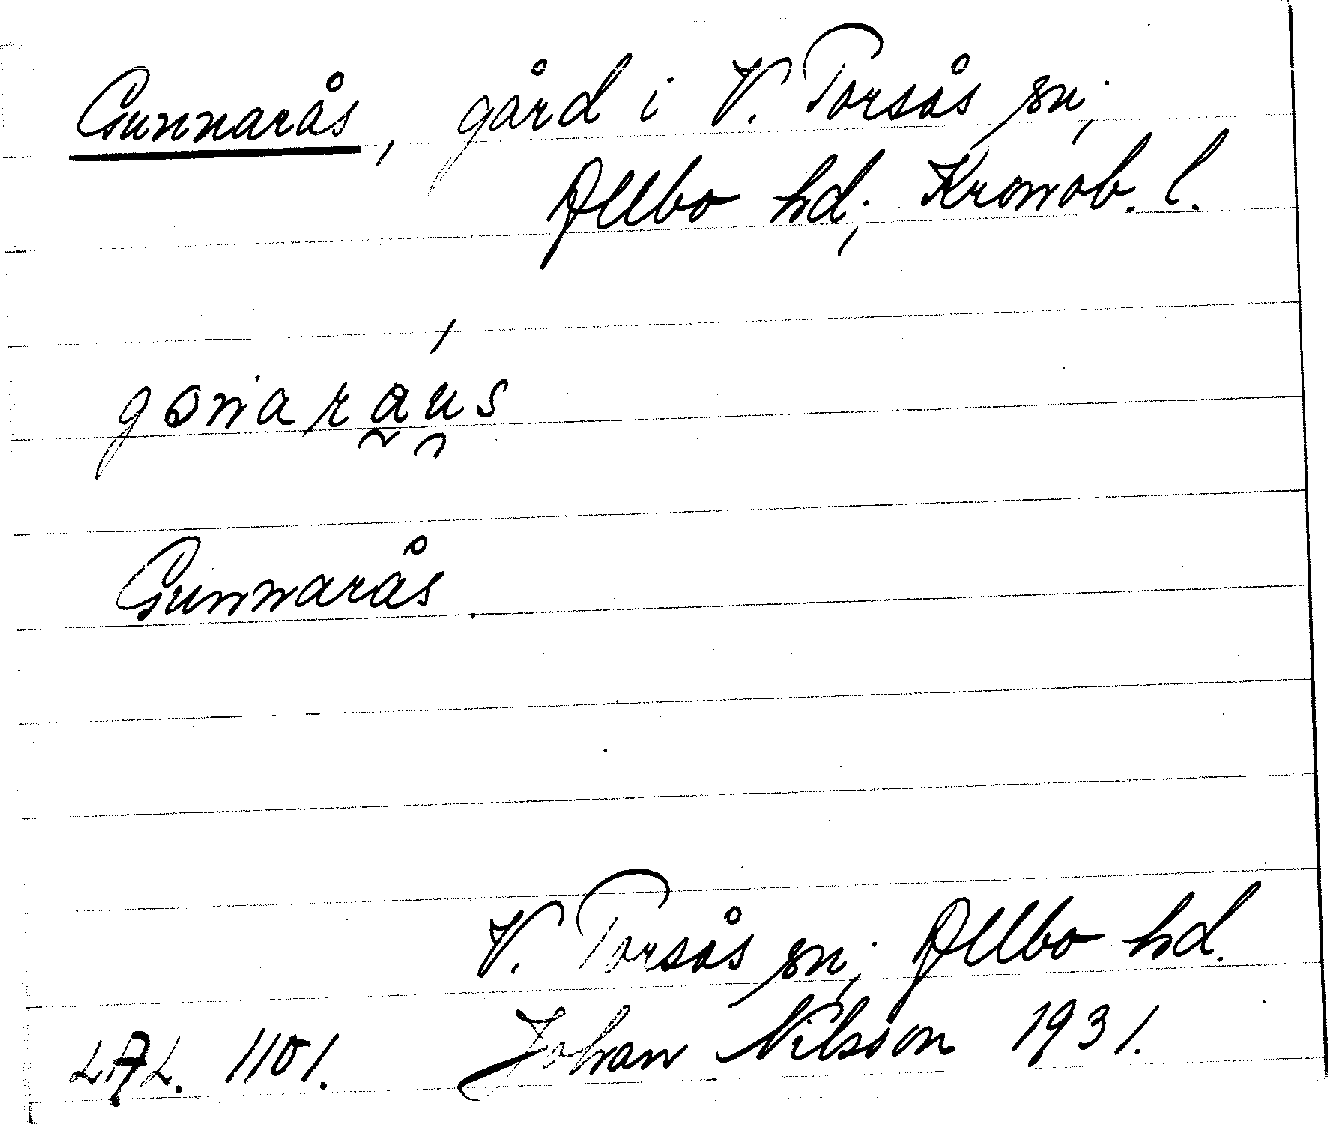 Gunnarås, gård i V. Torsås sn;
Allbo hd; Kronob. l.
gonarạu̯s
Gunnarås.
V. Torsås sn; Allbo hd.
LAL. 1101. Johan Nilsson 1931.